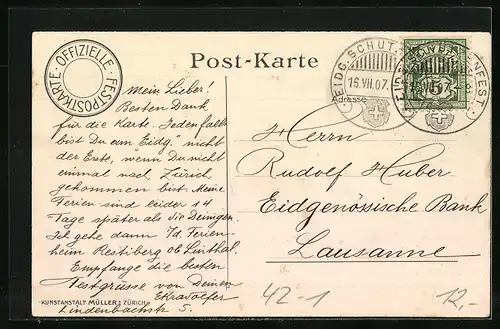 OFFIZIELLE FESTPOSTKARTE
Post-Karte
EIDG. SCHÜT
16.VII.07.
VII.07
ENFEST.
Adresse
Mein Lieber!
Besten Dank
für die Karte. Jedenfalls
bist Du am Eidg. nicht
der Erste, wenn Du nicht
einmal nach Zürich
gekommen bist. Meine
Ferien sind leider 14
Tage später als die Deinigen.
Ich gehe dann i/d. Ferien-
heim Reitiberg ob Linthal.
Empfange die besten
Festgrüsse von Deinem
Lindenbachstr. 5.
KUNSTANSTALT MÜLLER, ZÜRICH
Herrn
Rudolf Huber
Eidgenössische Bank
Lausanne
42-1
12,-